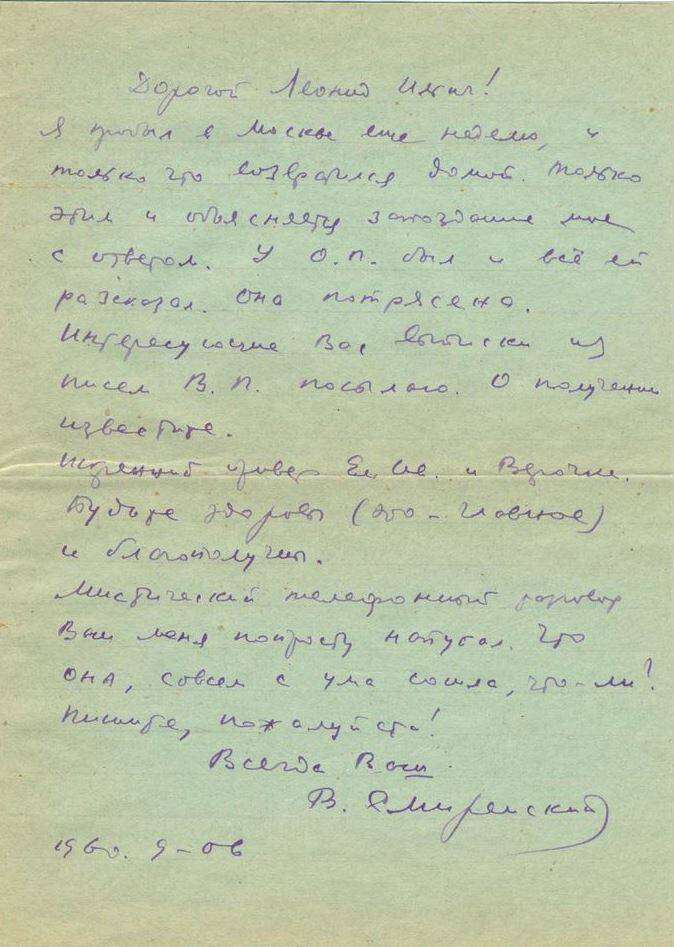 Дорогой Леонид Ильич!
Я пробыл в Москве еще неделю, и
только что возвратился домой. Только
этим и объясняется запоздание мое
с ответом. У О.П. был и всё ей
рассказал. Она потрясена.
Интересующие Вас выписки из
писем В.П. посылаю. О получении
известите.
Искренний привет Ел. и Верочке.
Будьте здоровы (это – главное)
и благополучны.
Мистический телефонный разговор
Ваш меня попросту напугал. Что
она, совсем с ума сошла, что-ли?
Пишите, пожалуйста!
Всегда Ваш
В. Смиренский
1960. 9-06